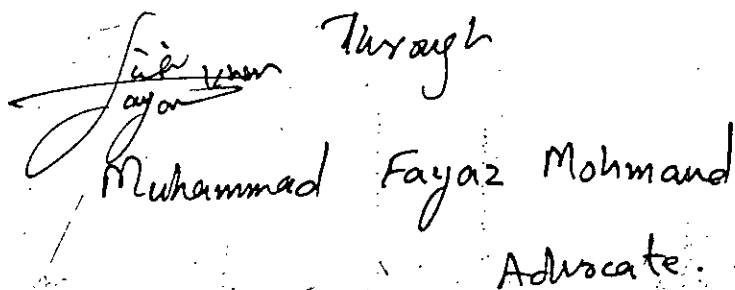 Through
Muhammad Fayaz Mohmand
Advocate.